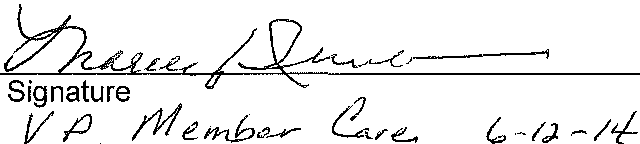 Signature
V P. Member Care 6-12-14